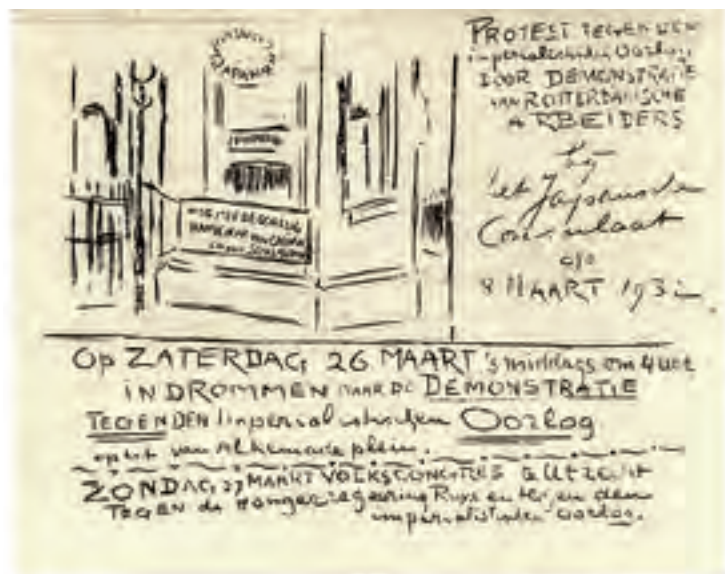 CONSULAAT
JAPANS
PROTEST TEGEN DEN
imperialistischen Oorlog
DOOR DEMONSTRATIE
VAN ROTTERDAMSCHE
ARBEIDERS
bij
het Japansche
Consulaat
op
8 MAART 1932.
Op ZATERDAG, 26 MAART 's middags om 4 uur
IN DROMMEN naar de DEMONSTRATIE
TEGEN DEN Imperialistischen Oorlog
van Alkemade plein.
ZONDAG, 27 MAART VOLKSCONGRES te Utrecht
TEGEN de Hongerregeering Ruys en tegen den
imperialistischen oorlog.